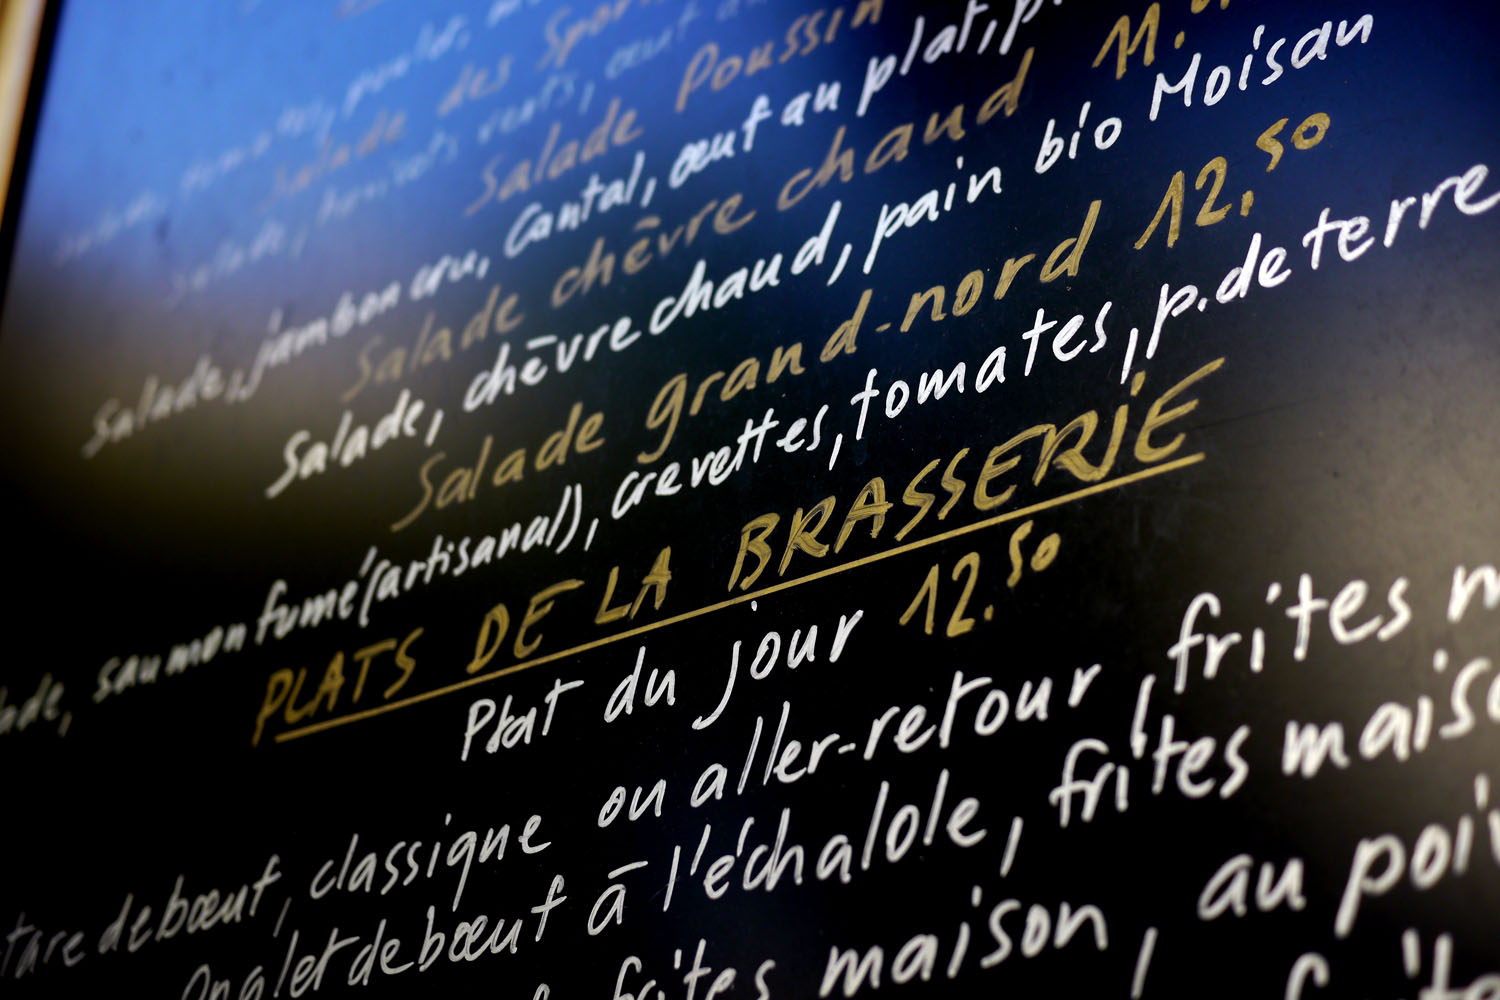 Salade des
Salade, haricots verts, œuf
Salade Poussin
Salade, jambon cru, Cantal, œuf au plat, p.
Salade chèvre chaud 11.
Salade, chèvre chaud, pain bio Moisan
Salade grand-nord 12.50
saumon fumé (artisanal), crevettes, tomates, p. de terre
PLATS DE LA BRASSERIE
Plat du jour 12.50
tare de bœuf, classique ou aller-retour, frites
Onglet de bœuf à l'échalole, frites maiso
frites maison, au poiv